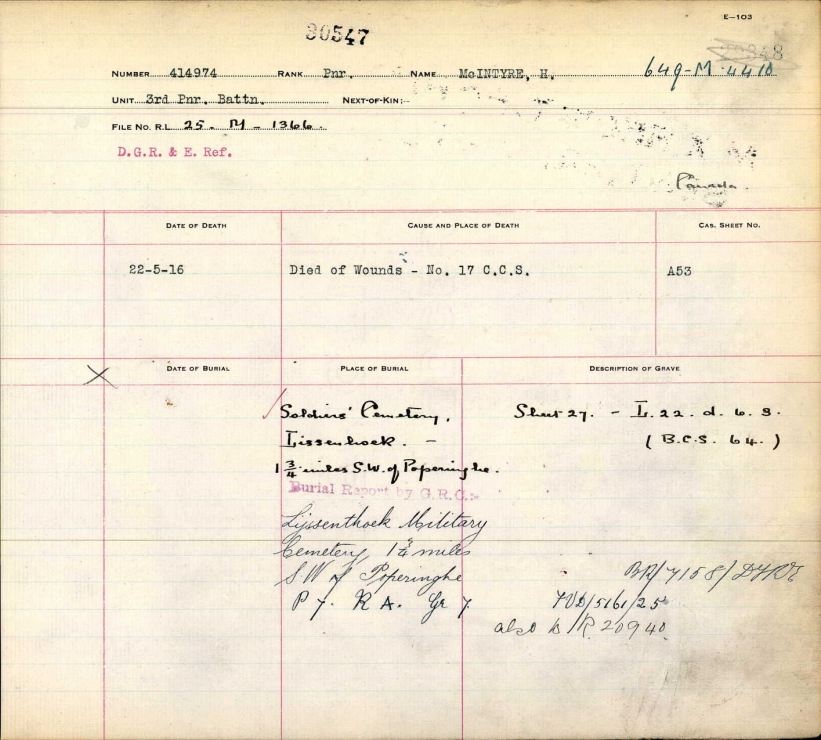 E-103
30547
NUMBER 414974 RANK Pnr. NAME McINTYRE, H. 649-M-4410
UNIT 3rd Pnr. Battn. NEXT-OF-KIN:-
FILE NO. R.L. 25. M - 1366.
D.G.R. & E. Ref.
Canada.
DATE OF DEATH CAUSE AND PLACE OF DEATH CAS. SHEET NO.
22-5-16 Died of Wounds - No. 17 C.C.S. A53
X DATE OF BURIAL PLACE OF BURIAL DESCRIPTION OF GRAVE
Soldiers' Cemetery, Sheet 27. - L. 22. d. 6. 3.
Lissenhoek. - (B.C.S. 64.)
1 3/4 miles S.W. of Poperinghe.
Burial Report by G.R.C:-
Lijssenthoek Military
Cemetery, 1 3/4 miles
S W of Poperinghe BR/7158/
P 7. R A. Gr 7 /5161/25
also 20940